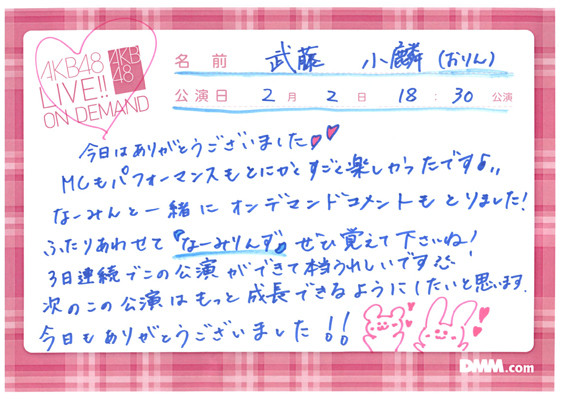 AKB48
LIVE!!
ON DEMAND
AKB
48
名前 武藤 小麟(おりん)
公演日 2月2日 18:30公演
今日はありがとうございました
MCもパフォーマンスもとにかくすごく楽しかったです♪,,
なーみんと一緒にオンデマンドコメントもとりました!
ふたりあわせて『なーみりんず』ぜひ覚えて下さいね!
3日連続でこの公演ができて本当うれしいです
次のこの公演はもっと成長できるようにしたいと思います.
今日もありがとうございました!!
DMM.com